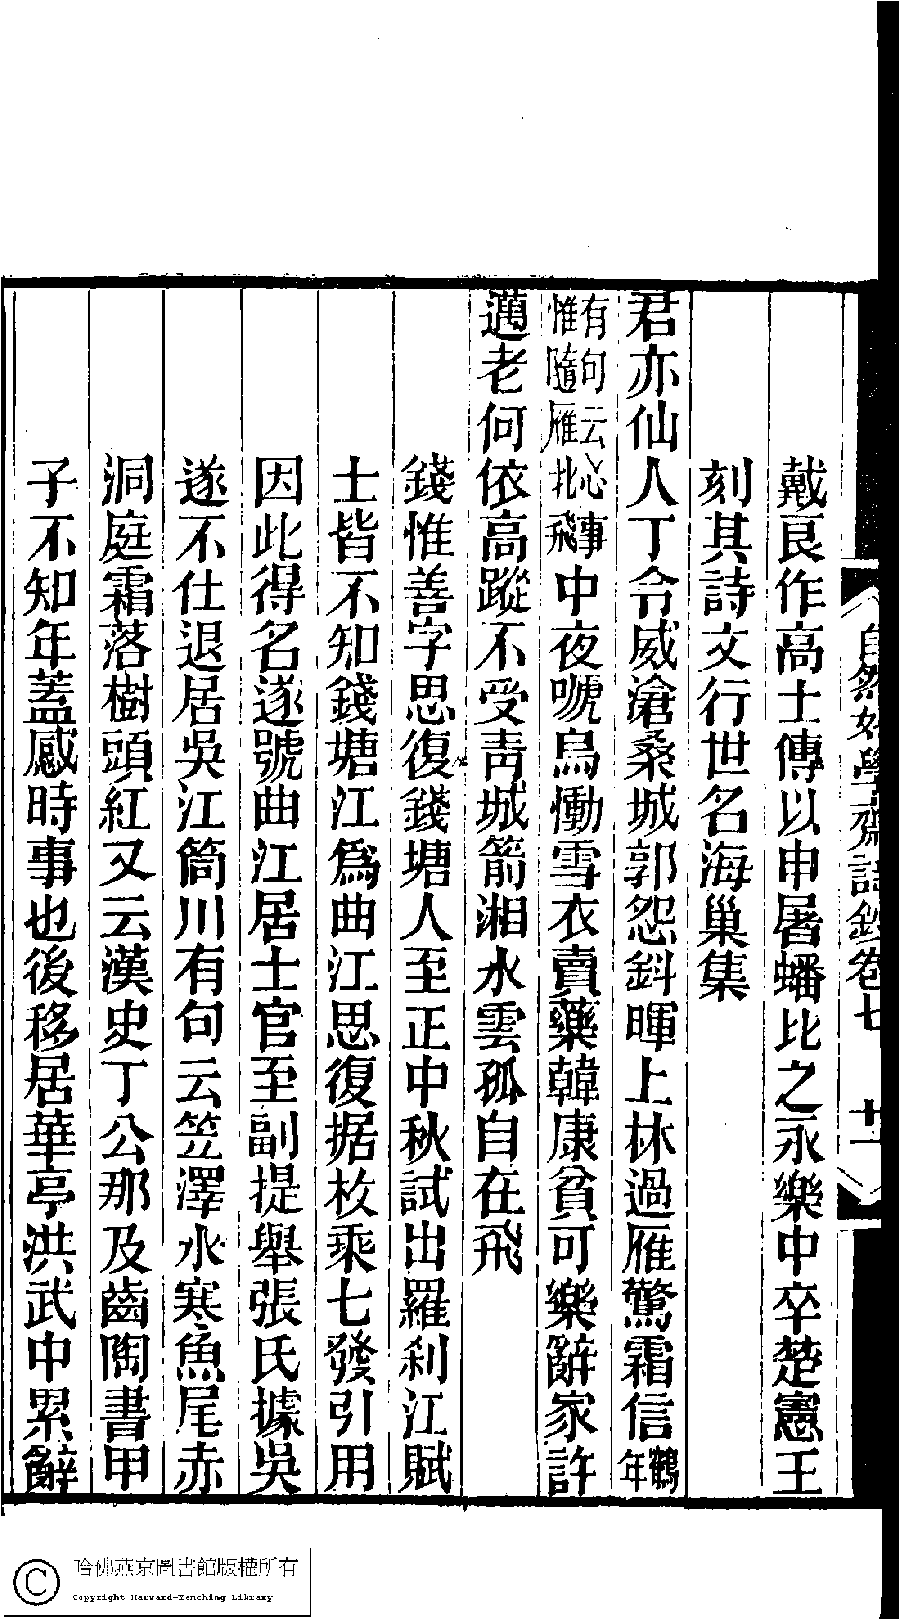 自然好學齋詩鈔卷七 十一
戴良作高士傳以申屠蟠比之永樂中卒楚憲王
刻其詩文行世名海巢集
君亦仙人丁令威滄桑城郭怨斜暉上林過雁驚霜信鶴年
有句云心事惟隨雁北飛中夜嗁烏慟雪衣賣藥韓康貧可樂辭家許
邁老何依高蹤不受靑城箭湘水雲孤自在飛
錢惟善字思復錢塘人至正中秋試出羅刹江賦
士皆不知錢塘江爲曲江思復据枚乘七發引用
因此得名遂號曲江居士官至副提舉張氏據吳
遂不仕退居吳江筒川有句云笠澤水寒魚尾赤
洞庭霜落樹頭紅又云漢史丁公那及齒陶書甲
子不知年蓋感時事也後移居華亭洪武中累辭
哈佛燕京圖書館版權所有
Copyright Harvard-Yenching Library